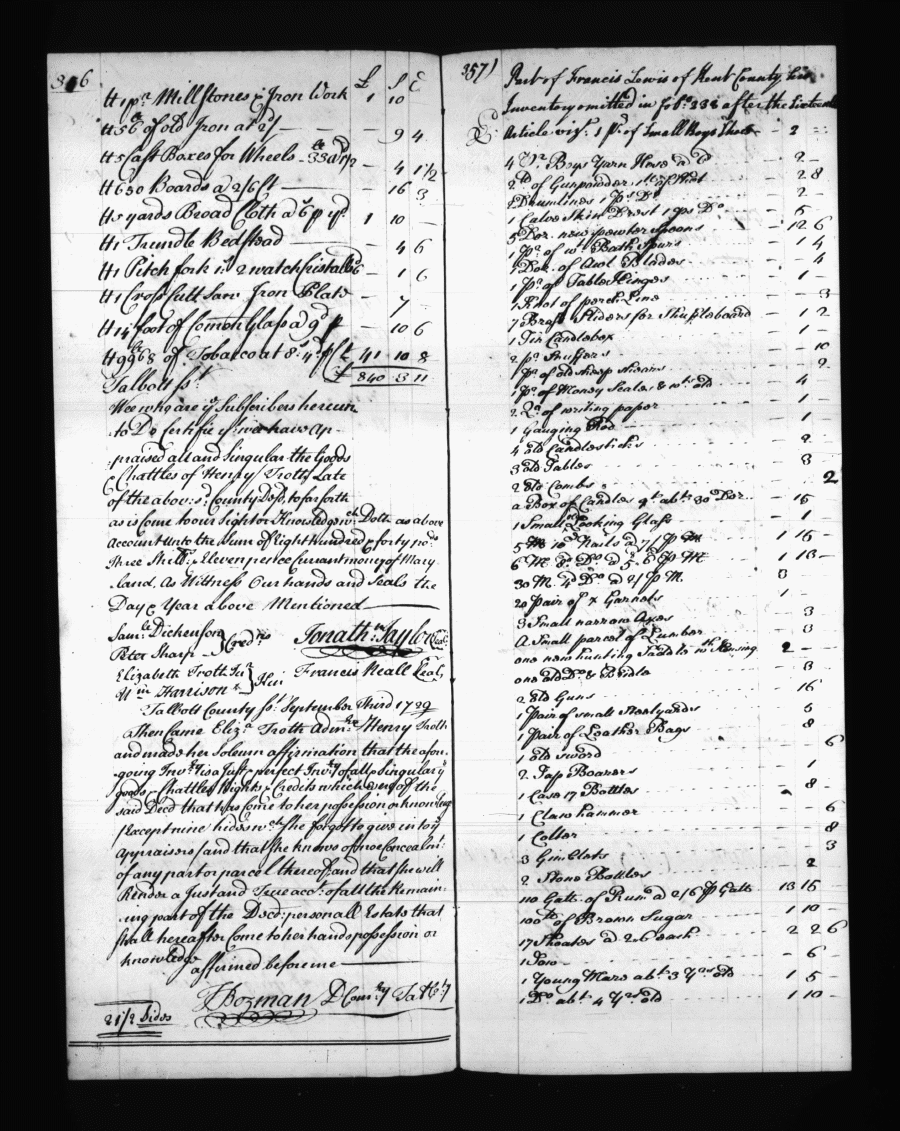 £ S d
To 1 pr Millstones & Iron Work 1 10
of old Iron at 2d — — 9 4
5 Cast Boxes for Wheels - — 4 1½
To 630 Boards a 2/6 Ct — 16 3
To 5 yards Broad Cloth a 6 p yd. 1 10 —
To 1 Trundle Bedstead — 4 6
To 1 Pitch fork 2 watch — 1 6
To 1 Cross Cutt Saw Iron Plate — 7 —
To 14 foot of Common Glass a 9d p — 10 6
To 9968 of Tobacco at 8s 4d p Ct 41 10 8
£ 840 3 11
Talbott Ss.
Wee who are ye Subscribers hereun
to Do Certifie yt we have ap
praised all and Singular the Goods
& Chattles of Henry Trotth Late
of the aboves.d County Desd. so far forth
as is Come to our Sight or Knowledge wch Doth as above
Account unto the Sum of Eight hundred & forty pods
three Shill: & Eleven pence Currant money of Mary
land. As Witness Our hands and Seals the
Day & Year above Mentioned
Saml. Dickenson
Peter Sharp } Credrs Jonathn Taylor Seal
Elizabeth Troth Junr
Wm Harrison } Kin Francis Neall Seal
Talbott County Ss. September Third 1729
Then Came Eliza Troth Admrx Henry Troth
and made her Solemn affirmation that the afore
going Invry is a Just & perfect Invry of all & Singular ye
goods & Chattles Rights & Credits which were of the
said Decd that has Come to her possession or knowledge
(Except nine hides wch She forgot to give in to ye
Appraisers) and that She knows of noe Concealmt
of any part or parcel thereof, and that she will
Render a Just and True acct. of all the Remain
ing part of the Decd: personall Estate that
shall hereafter Come to her hands possession or
knowledge
affirmed before me
T Bozman D Comry Talb. Cty
21/2 Sides
357)
Part of Francis Lewis of Kent County
Inventory omitted in fol.o 338 after the Sixteenth
Article vizt. 1 pr. of Small Boys Shoes — 2
4 Pr. Boys Yarn Hose — 2 -
of Gunpowder of Shot — 2 8
2 Drumlines 1 ps Do — 2 -
1 Calve Skin Drest 1 ps Do — 5 -
5 Doz. new pewter Spoons — 12 6
1 Pr. of wt. Bath Spurs — 1 4
1 Doz. of Awl Blades — 4
1 Pr. of Table Hinges — 1 -
1 Knot of perch Line 3
7 Brass Sliders for Shuffleboard — 1 2
1 Tin Candlebox — 1 -
2 pr. Snuffers — 10
1 Pr. of old sheep shears — 2
1 Pr. of Money Scales & wts. old — 4
2 Qrs. of writing paper — 1 -
1 Gauging Rod — 1 -
4 old Candlesticks — 2
3 old Tables — 3
2 old Combs 2
a Box of Candles qt. abt. 30 Doz. — 15
1 Small Looking Glass — 1 -
5 M 10d Nails a 7/ p M 1 15 -
6 M. 8d. Do. a 5.6 p M 1 13 -
30 M. 4d Do a 2/ p M. 3
20 pair of X Garnets 1 -
3 Small narrow Axes — 3
A Small parcel of Lumber — 3
one new hunting Saddle wth Housing 2 - -
one old Do. & Bridle — 3
2 Old Guns — 16
1 pair of small Steelyards — 5
1 pair of Leather Bags — 8
1 old Sword 6
2 Tap Boarers — 1
1 Case 17 Bottles — 8 -
1 Claw hammer 6
1 Colter 8
3 Gimblets 3
2 Stone Bottles 2
110 Galls. of Rum a 2/6 p Gall 13 15
100 lb of Brown Sugar 1 10 -
17 Shoates a 2.6 each 2 2 6
1 Sow — 6 -
1 Young Mare abt. 3 Yrs old 1 5 -
1 Do. abt. 4 Yrs old 1 10 -